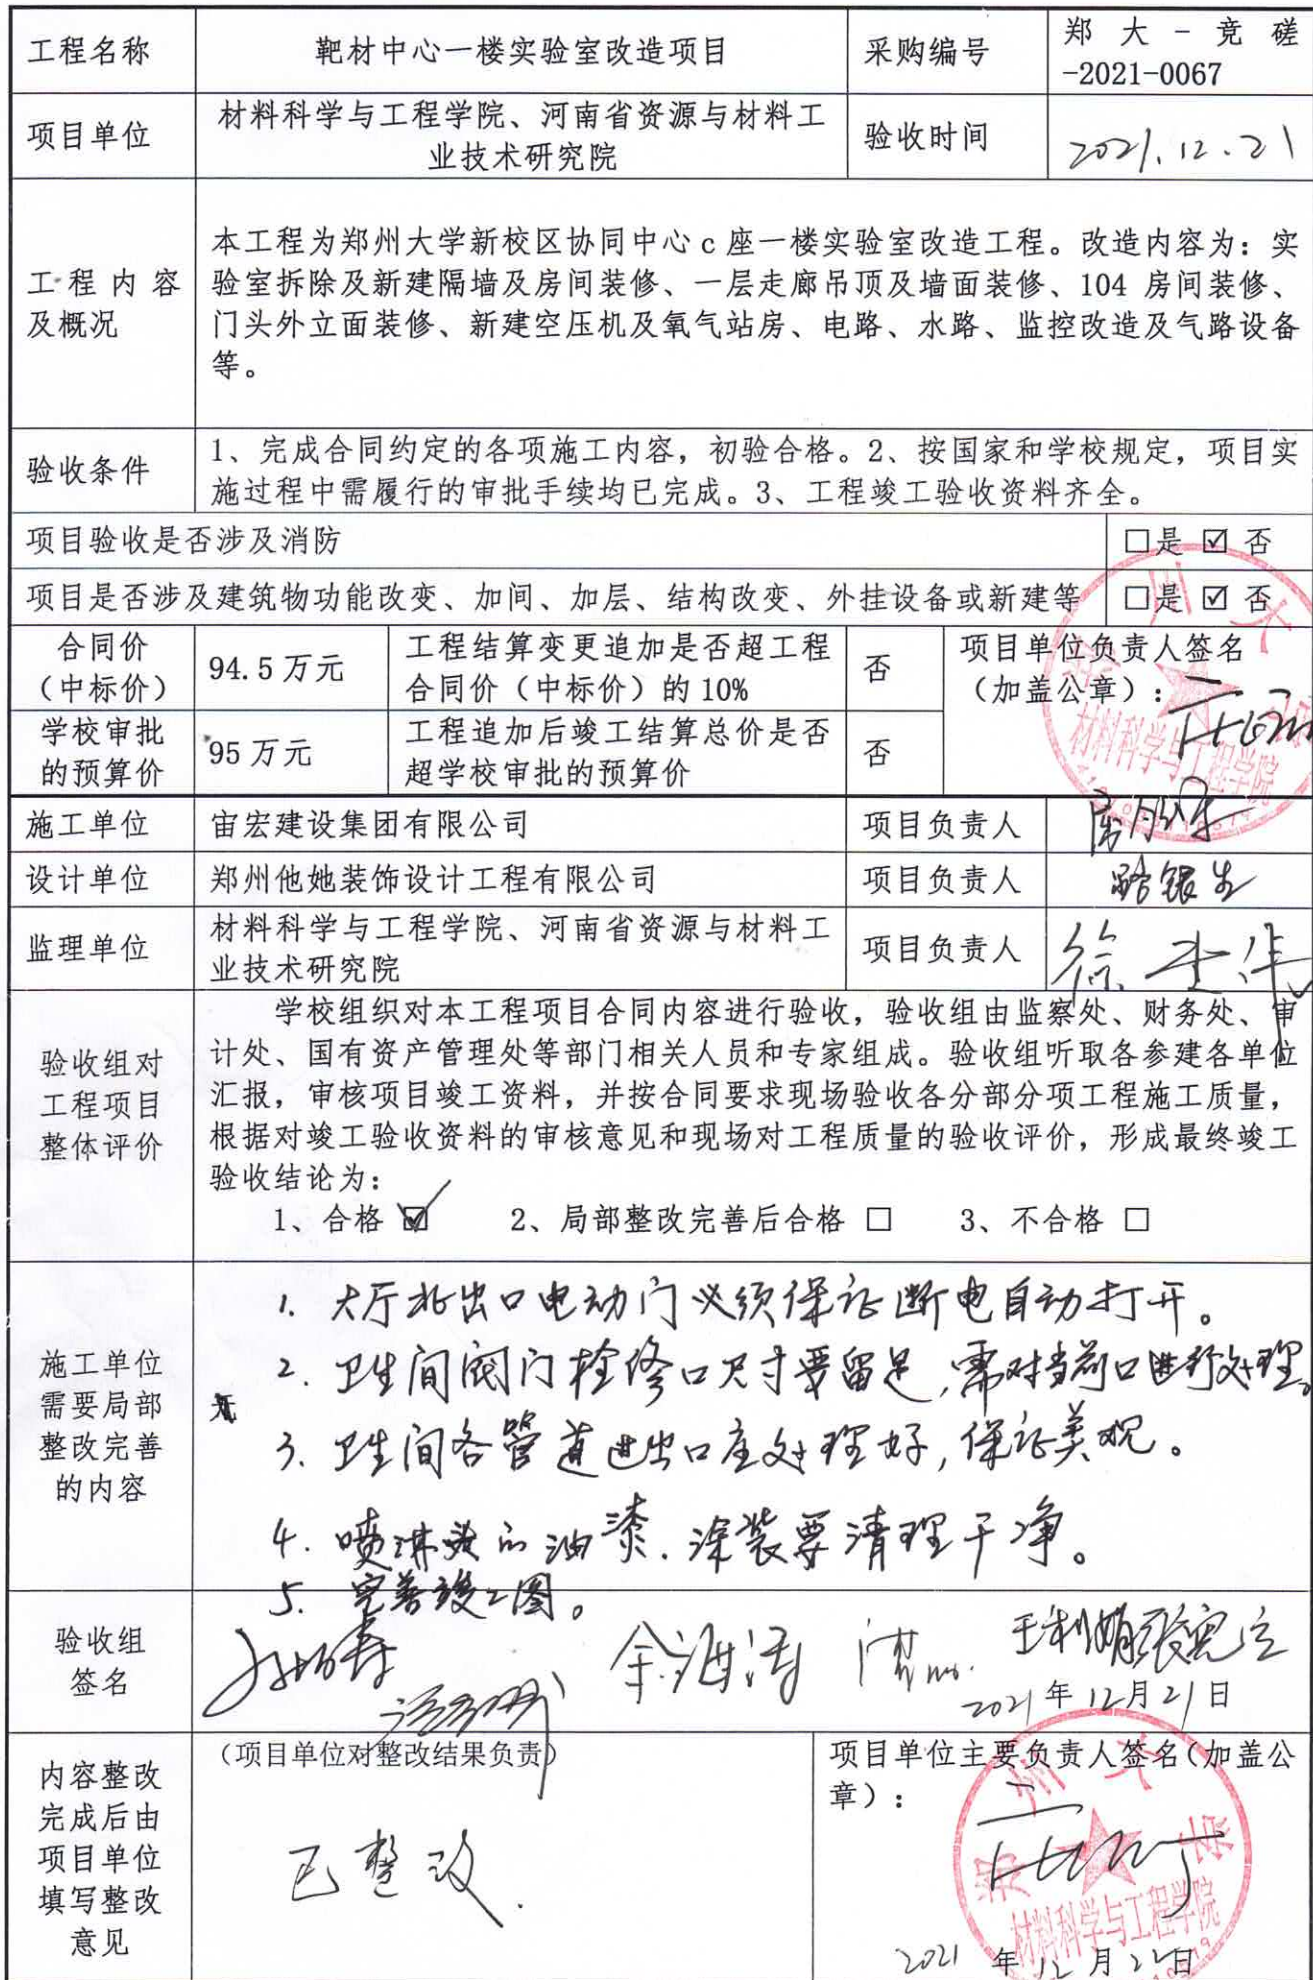 工程名称
靶材中心一楼实验室改造项目
采购编号
郑大-竞磋
-2021-0067
项目单位
材料科学与工程学院、河南省资源与材料工
业技术研究院
验收时间
2021.12.21
工程内容
及概况
本工程为郑州大学新校区协同中心c座一楼实验室改造工程。改造内容为：实
验室拆除及新建隔墙及房间装修、一层走廊吊顶及墙面装修、104 房间装修、
门头外立面装修、新建空压机及氧气站房、电路、水路、监控改造及气路设备
等。
验收条件
1、完成合同约定的各项施工内容，初验合格。2、按国家和学校规定，项目实
施过程中需履行的审批手续均已完成。3、工程竣工验收资料齐全。
项目验收是否涉及消防
□是 ☑ 否
项目是否涉及建筑物功能改变、加间、加层、结构改变、外挂设备或新建等
□是 ☑ 否
合同价
（中标价）
94.5 万元
工程结算变更追加是否超工程
合同价（中标价）的 10%
否
项目单位负责人签名
（加盖公章）：
郑州大
材料科学与工程学院
学校审批
的预算价
95 万元
工程追加后竣工结算总价是否
超学校审批的预算价
否
施工单位
宙宏建设集团有限公司
项目负责人
设计单位
郑州他她装饰设计工程有限公司
项目负责人
路银生
监理单位
材料科学与工程学院、河南省资源与材料工
业技术研究院
项目负责人
验收组对
工程项目
整体评价
学校组织对本工程项目合同内容进行验收，验收组由监察处、财务处、审
计处、国有资产管理处等部门相关人员和专家组成。验收组听取各参建各单位
汇报，审核项目竣工资料，并按合同要求现场验收各分部分项工程施工质量，
根据对竣工验收资料的审核意见和现场对工程质量的验收评价，形成最终竣工
验收结论为：
1、合格 ☑ 2、局部整改完善后合格 □ 3、不合格 □
施工单位
需要局部
整改完善
的内容
1. 大厅北出口电动门必须保证断电自动打开。
2. 卫生间阀门检修口尺寸要留足，需对当前口进行处理。
3. 卫生间各管道进出口应处理好，保证美观。
4. 喷淋头的油漆、涂装要清理干净。
5. 完善竣工图。
验收组
签名
2021年12月21日
内容整改
完成后由
项目单位
填写整改
意见
（项目单位对整改结果负责）
已整改.
项目单位主要负责人签名（加盖公
章）：
郑州大学
材料科学与工程学院
2021 年 12 月 22日